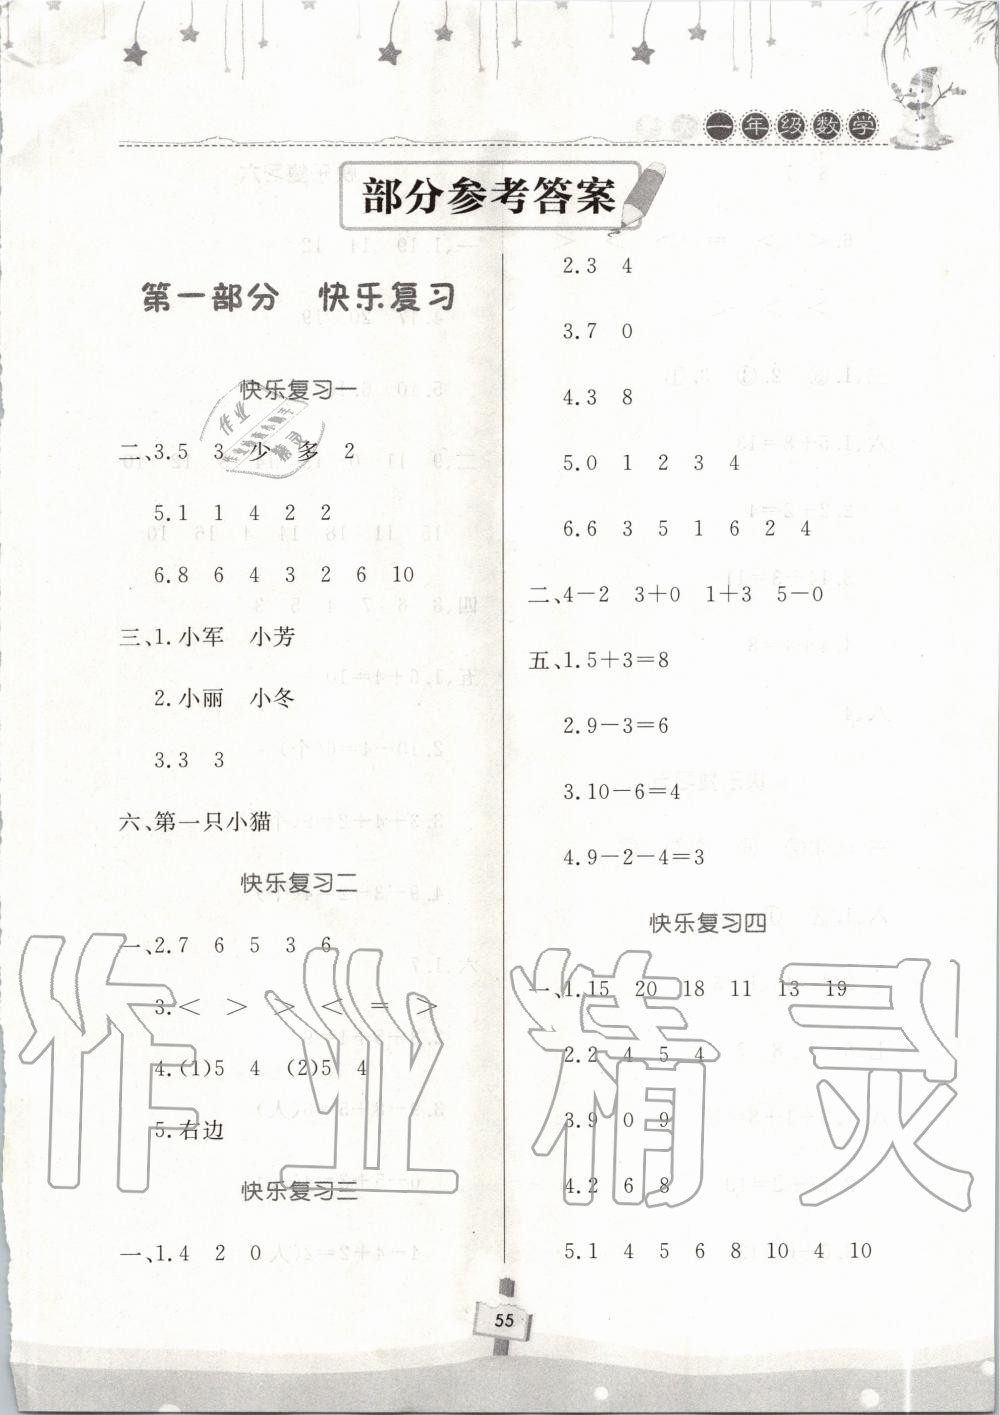 一年级数学
部分参考答案
第一部分 快乐复习
快乐复习一
二、3.5 3 少 多 2
5.1 1 4 2 2
6.8 6 4 3 2 6 10
三、1.小军 小芳
2.小丽 小冬
3.3 3
六、第一只小猫
快乐复习二
一、2.7 6 5 3 6
3.< > > < = >
4.(1)5 4 (2)5 4
5.右边
快乐复习三
一、1.4 2 0
2.3 4
3.7 0
4.3 8
5.0 1 2 3 4
6.6 3 5 1 6 2 4
二、4-2 3+0 1+3 5-0
五、1.5+3=8
2.9-3=6
3.10-6=4
4.9-2-4=3
快乐复习四
一、1.15 20 18 11 13 19
2.2 4 5 4
3.9 0 9
4.2 6 8
5.1 4 5 6 8 10 4 10
55
作业精灵